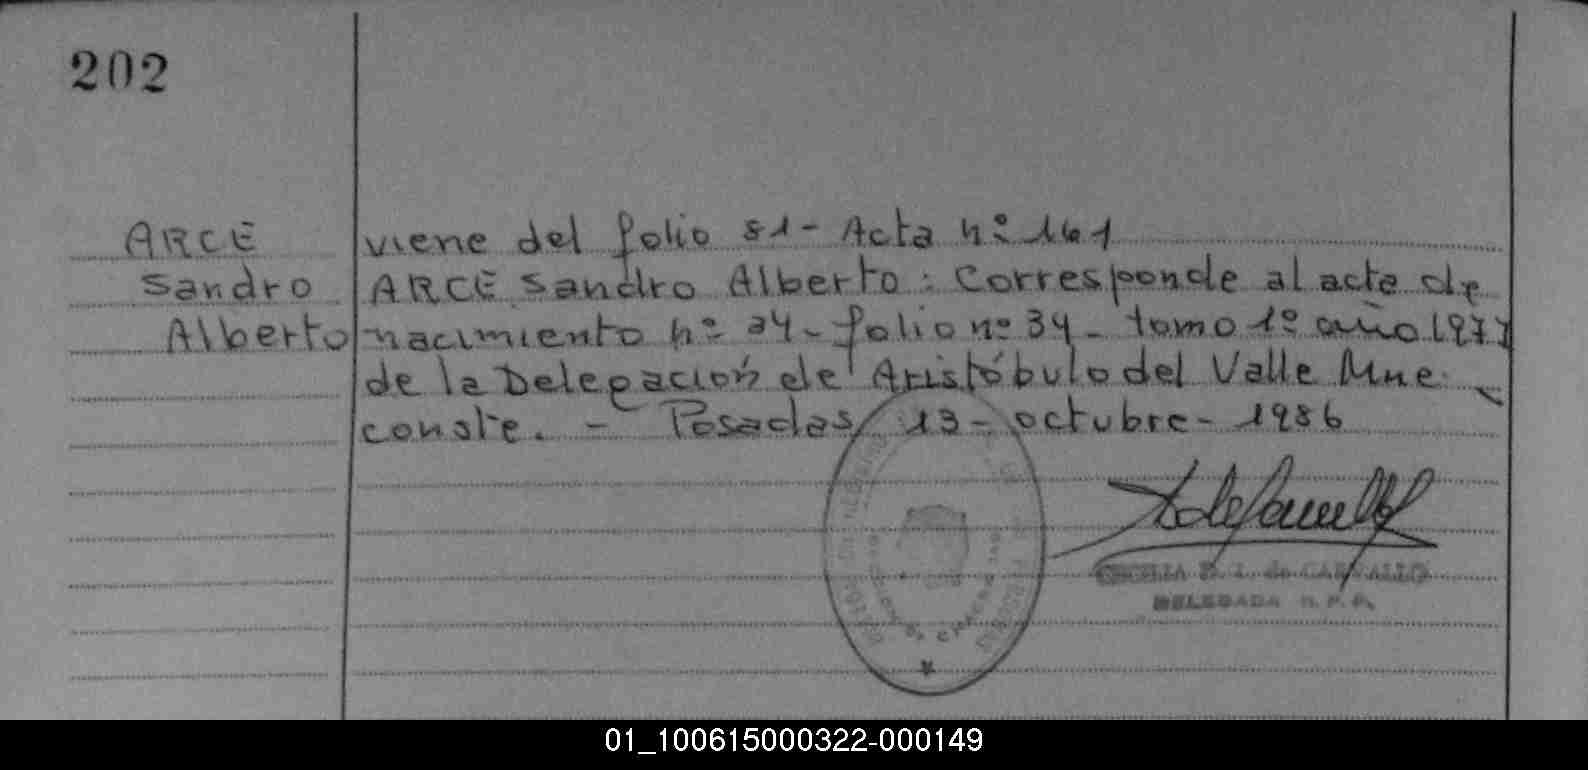 202
ARCE
Sandro
Alberto
viene del folio 81 - Acta nº 161
ARCE Sandro Alberto : Corresponde al acta de
nacimiento nº 34 - folio nº 34 - tomo 1º año 1977
de la Delegación de Aristóbulo del Valle Mne.
conste. - Posadas, 13 - octubre - 1986
CECILIA D. L. de CARVALLO
DELEGADA R. P. P.
01_100615000322-000149